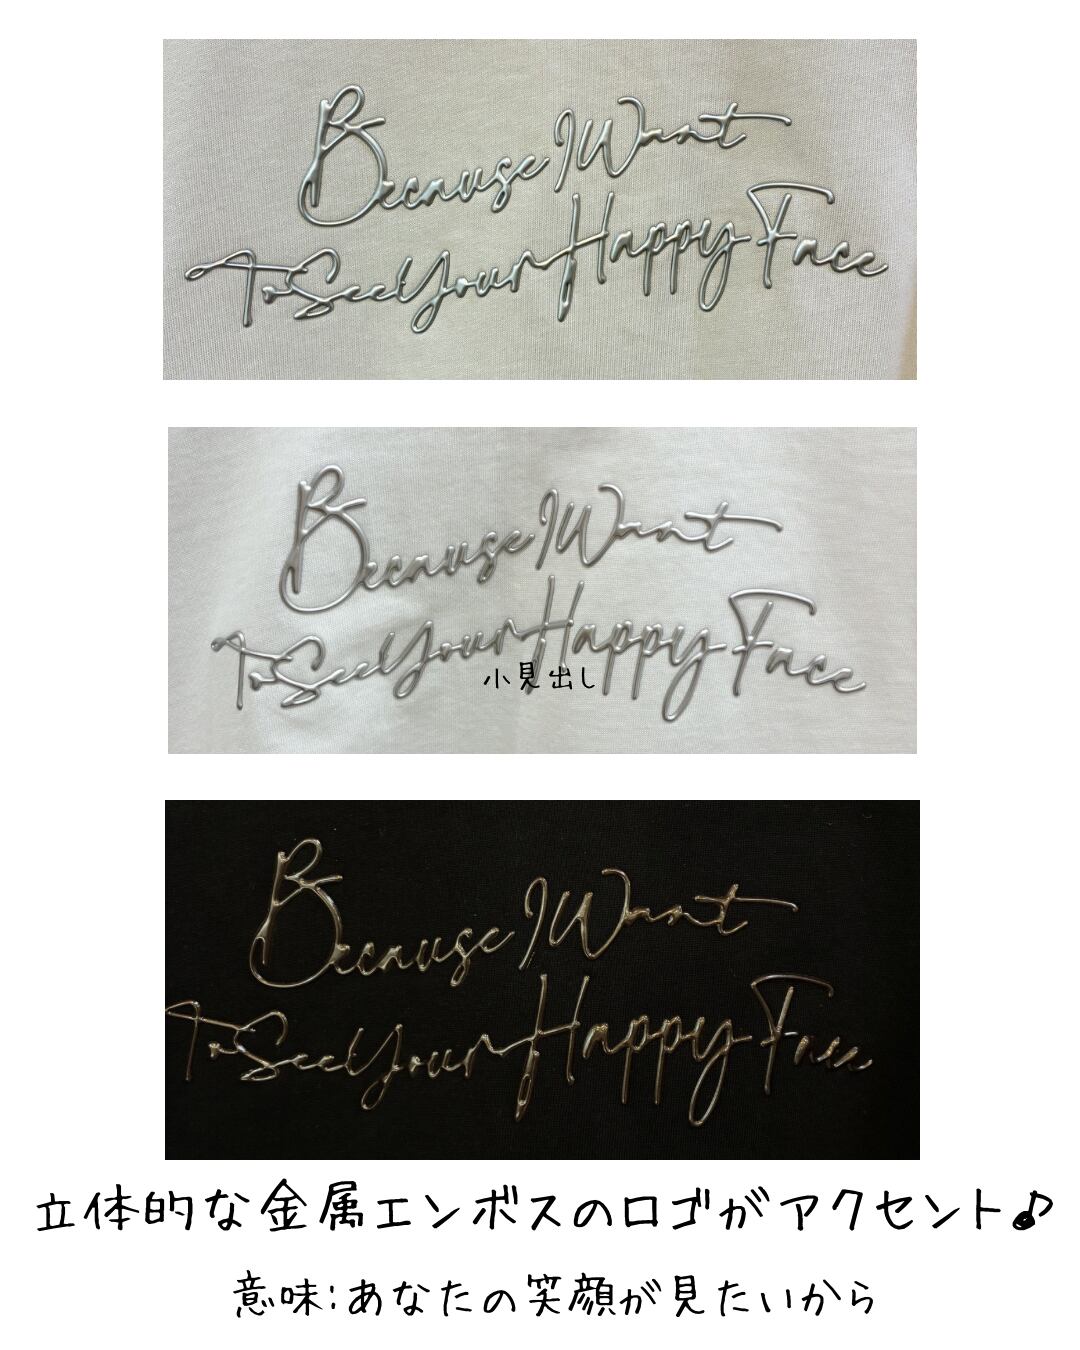 Because I Want
To See Your Happy Face
Because I Want
To See Your Happy Face
小見出し
Because I Want
To See Your Happy Face
立体的な金属エンボスのロゴがアクセント♪
意味:あなたの笑顔が見たいから